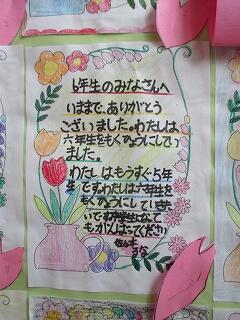 6年生のみなさんへ
いままで、ありがとう
ございました。わたしは
六年生をもくひょうにしてい
ました。
わたしはもうすぐ5年
生です。わたしは六年生を
もくひょうにしています
いです。中学生になって
もがんばってください